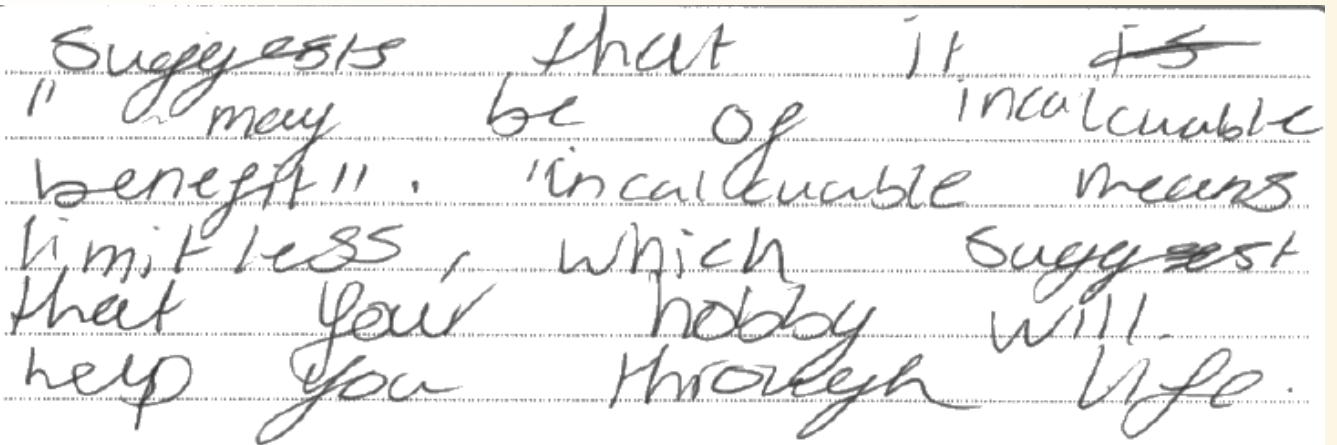 suggests that it
" may be of incalcuable
benefit". "incalcuable means
limitless, which suggest
that your hobby will.
help you through life.